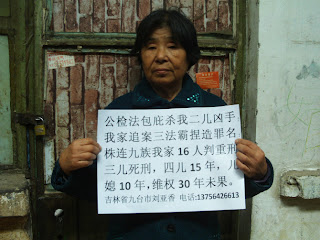 公检法包庇杀我二儿凶手
我家追案三法霸捏造罪名
株连九族我家 16 人判重刑
三儿死刑，四儿 15 年，儿
媳 10 年，维权 30 年未果。
吉林省九台市刘亚香 电话:13756426613